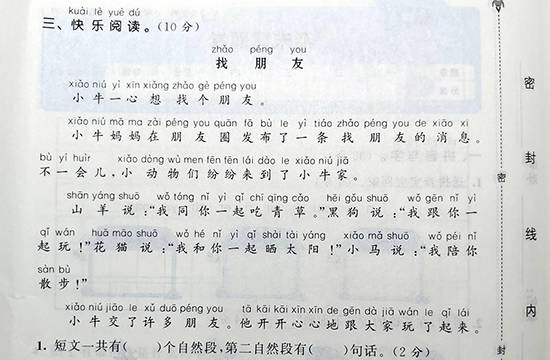 kuài lè yuè dú
三、快乐阅读。(10分)
zhǎo péng you
找 朋 友
xiǎo niú yì xīn xiǎng zhǎo gè péng you
小牛一心想找个朋友。
xiǎo niú mā ma zài péng you quān fā bù le yì tiáo zhǎo péng you de xiāo xi
小牛妈妈在朋友圈发布了一条找朋友的消息。
bù yí huìr xiǎo dòng wù men fēn fēn lái dào le xiǎo niú jiā
不一会儿,小动物们纷纷来到了小牛家。
shān yáng shuō wǒ tóng nǐ yì qǐ chī qīng cǎo hēi gǒu shuō wǒ gēn nǐ yì
山羊说:“我同你一起吃青草。”黑狗说:“我跟你一
qǐ wán huā māo shuō wǒ hé nǐ yì qǐ shài tài yáng xiǎo mǎ shuō wǒ péi nǐ
起玩!”花猫说:“我和你一起晒太阳!”小马说:“我陪你
sàn bù
散步!”
xiǎo niú jiāo le xǔ duō péng you tā kāi kāi xīn xīn de gēn dà jiā wán le qǐ lái
小牛交了许多朋友。他开开心心地跟大家玩了起来。
1. 短文一共有( )个自然段,第二自然段有( )句话。(2分)
密
封
线
内
密
封